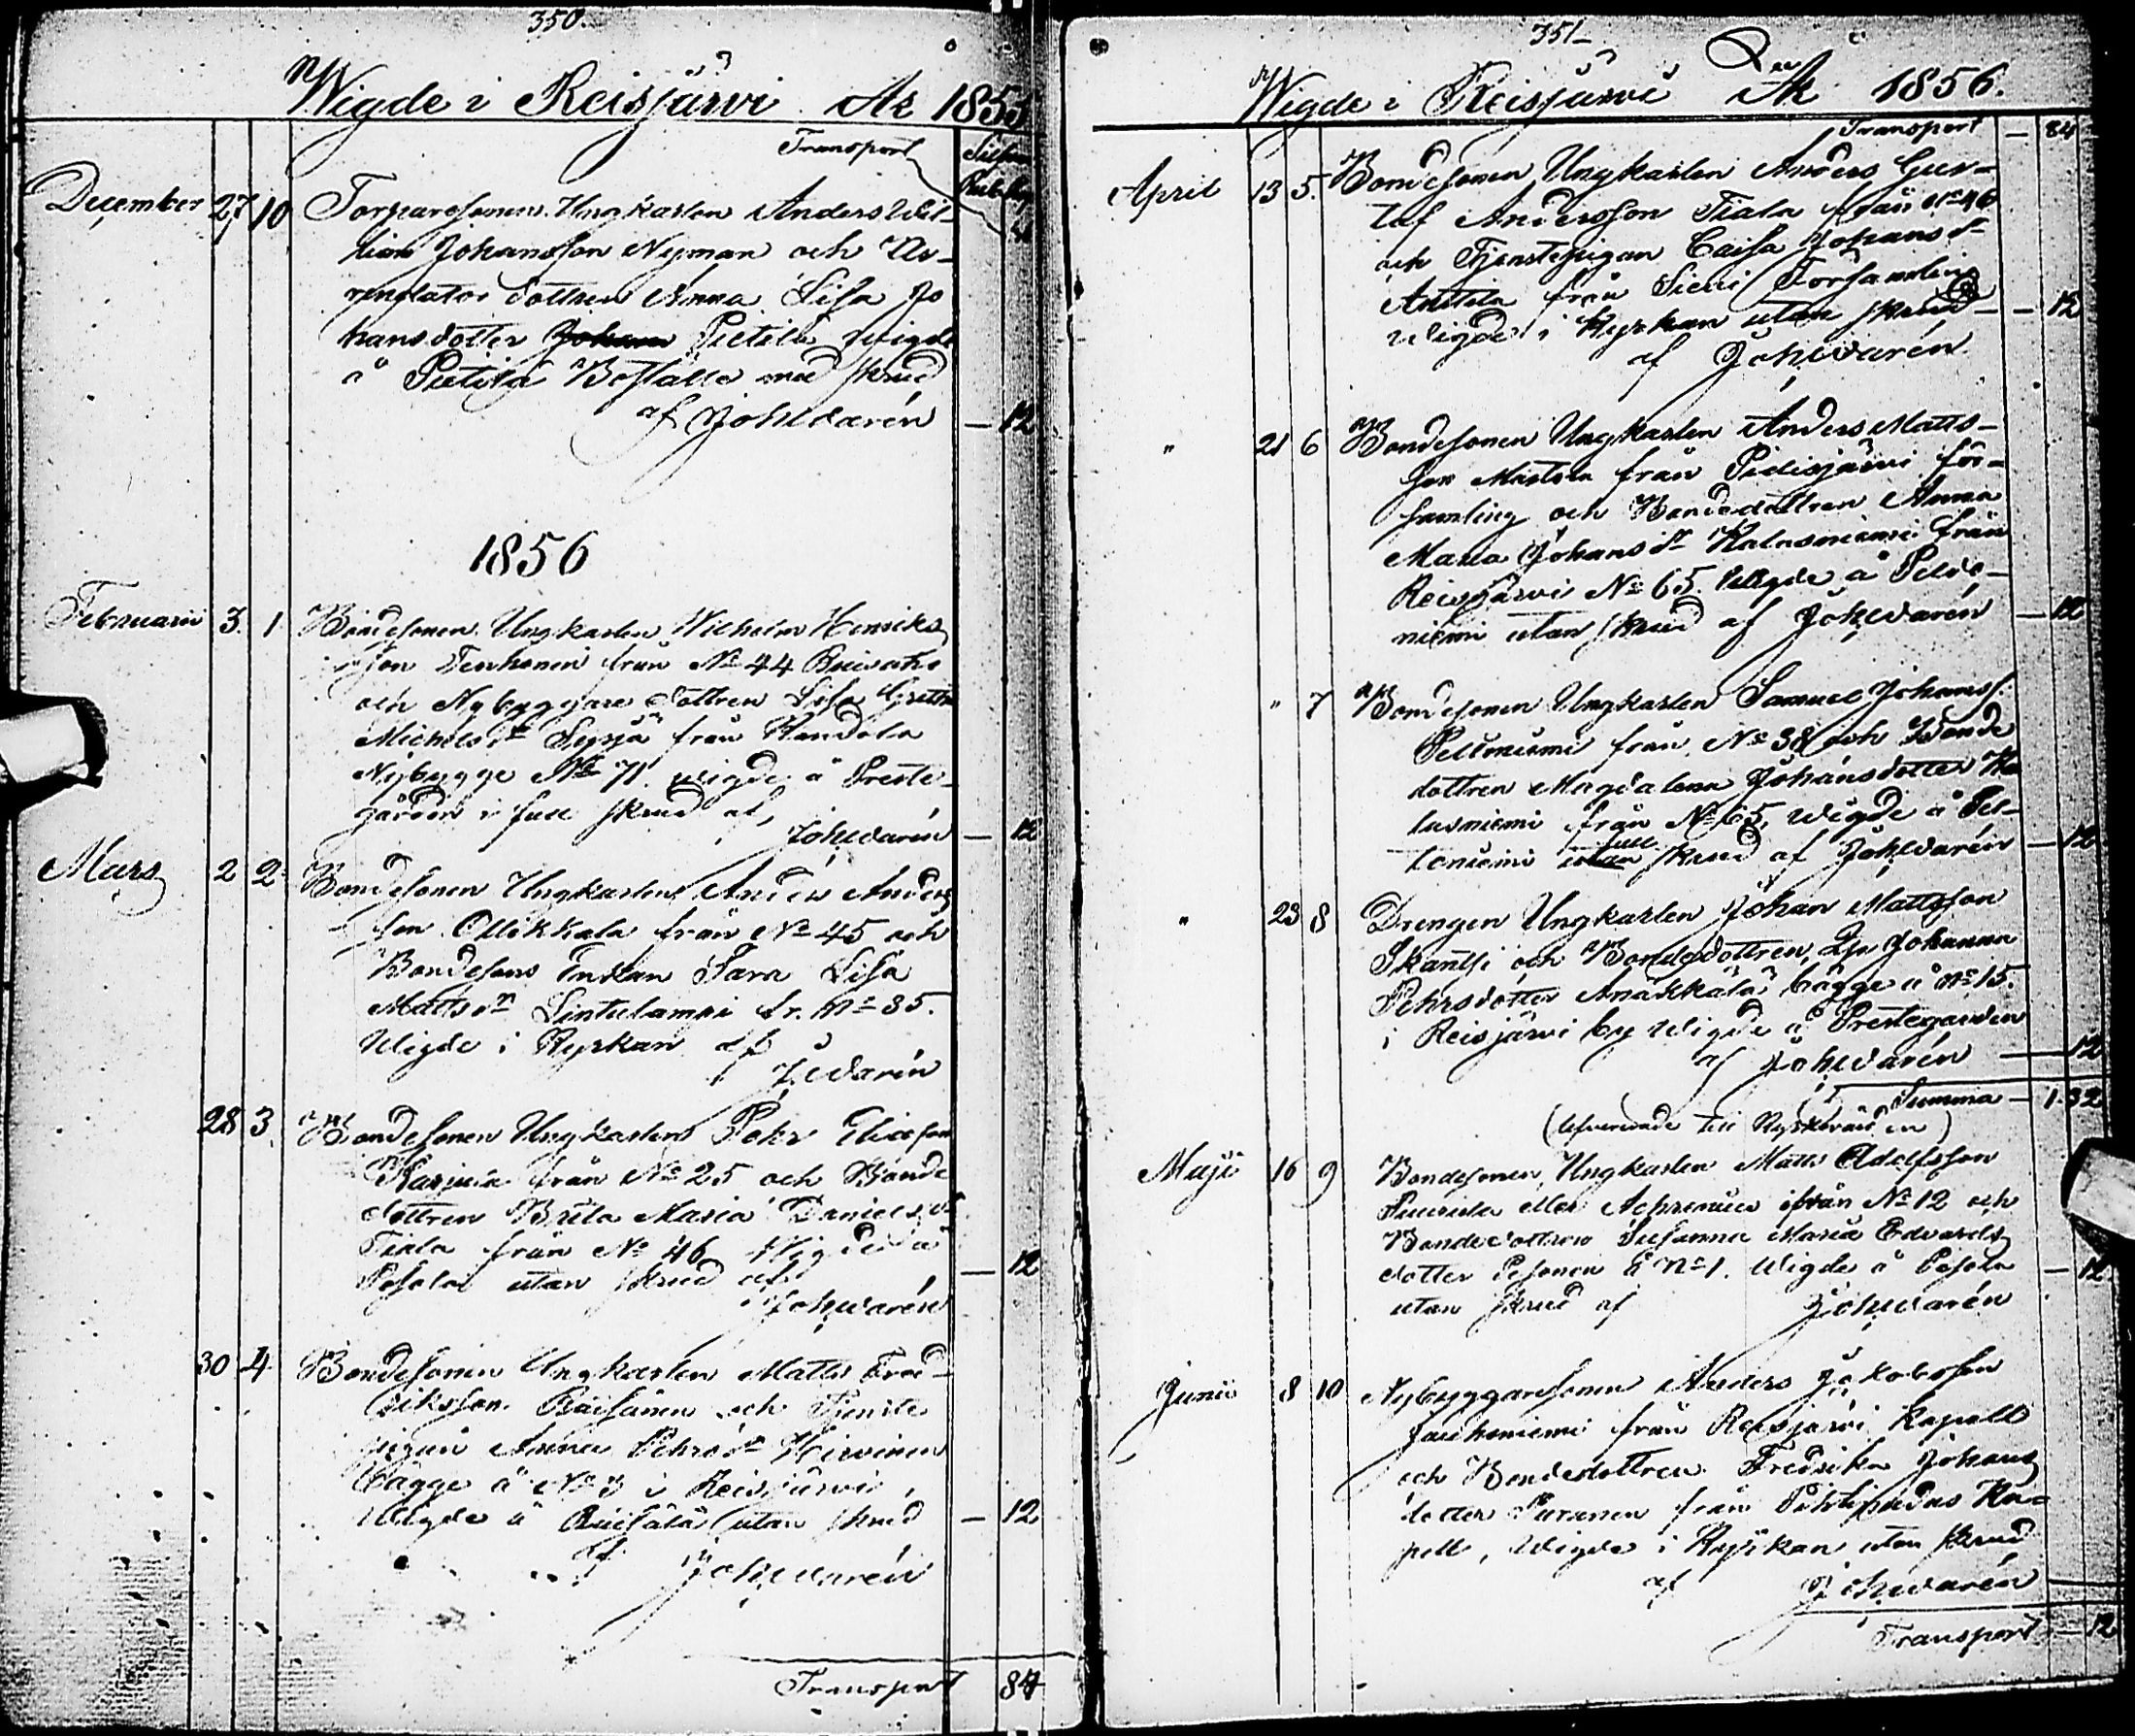 350.
Wigde i Reisjärvi År 1855
Transport
Silfver
Rub. Kop
December 27 10 Torparesonen Ungkarlen Anders Wil-
helm Johansson Nyman och
dottren Anna Lisa Jo
hansdotter Pietilä wigde
å Pietilä Boställe med skrud
af Joh. Warén — 12
1856
Februarii 3. 1 Bondesonen Ungkarlen Wilhelm Henriks
son Tenhonen från No 44
och Nybyggare dottren Lisa Greta
Michelsdr från
Nybygge No 71. wigde å Preste-
gården i full skrud af
Joh. Warén — 12
Mars 2 2 Bondesonen Ungkarlen Anders Anders
son Ollikkala från No 45 och
Bondesons Enkan Sara Lisa
Mattsdr Lintulampi fr. No 35.
Wigde i Kyrkan af
J. Warén
28 3. Bondesonen Ungkarlen Pehr Eliasson
från No 25 och Bonde
dottren Brita Maria Danielsdr
Tiala från No 46 Wigde å
utan skrud af — 12
Joh. Warén
30 4. Bondesonen Ungkarlen Matts Fred-
riksson Räisänen och Tjenste
pigan Anna Pehrsdr Hirvinen
bägge å No 3 i Reisjärvi
Wigde å Räisälä utan skrud — 12
af Joh. Warén
Transport 84
351
Wigde i Reisjärvi År 1856.
Transport — 84
April 13 5. Bondesonen Ungkarlen Anders Gus-
taf Andersson Tiala från No 46
och Tjenstepigan Caisa Johansdr
Anttila från Sievi Församling
Wigde i Kyrkan utan skrud — 12
af Joh. Warén
" 21 6 Bondesonen Ungkarlen Anders Matts-
son från Pidisjärvi för-
samling och Bondedottren Anna
Maria Johansdr Kalusniemi från
Reisjärvi No 65. Wigde å Pelto-
niemi utan skrud af Joh. Warén — 12
" 7 Bondesonen Ungkarlen Samuel Johanss.
Peltoniemi från No 38 och Bonde
dottren Magdalena Johansdotter Ka
lusniemi från No 65, wigde å Pel-
toniemi utan full skrud af Joh. Warén — 12
" 23 8 Drengen Ungkarlen Johan Mattsson
Skantsi och Bondedottren Johanna
Pehrsdotter bägge å No 15.
i Reisjärvi by Wigde å Prestegården
af Joh. Warén — 12
Summa — 1.32
(lefvererade till Kyrkovärden)
Maji 16 9 Bondesonen, Ungkarlen Matts Adolfsson
eller från No 12 och
Bondedottren Susanna Maria Edvards
dotter Pesonen å No 1. Wigde å Pesola — 12
utan skrud af Joh. Warén
Junii 8 10 Nybyggaresonen Anders Jakobsson
Jauhoniemi från Reisjärvi Kapell
och Bondedottren Fredrika Johans
dotter Puranen från Pihtipudas Ka-
pell, Wigde i Kyrkan utan skrud
af Joh. Warén
Transport — 12